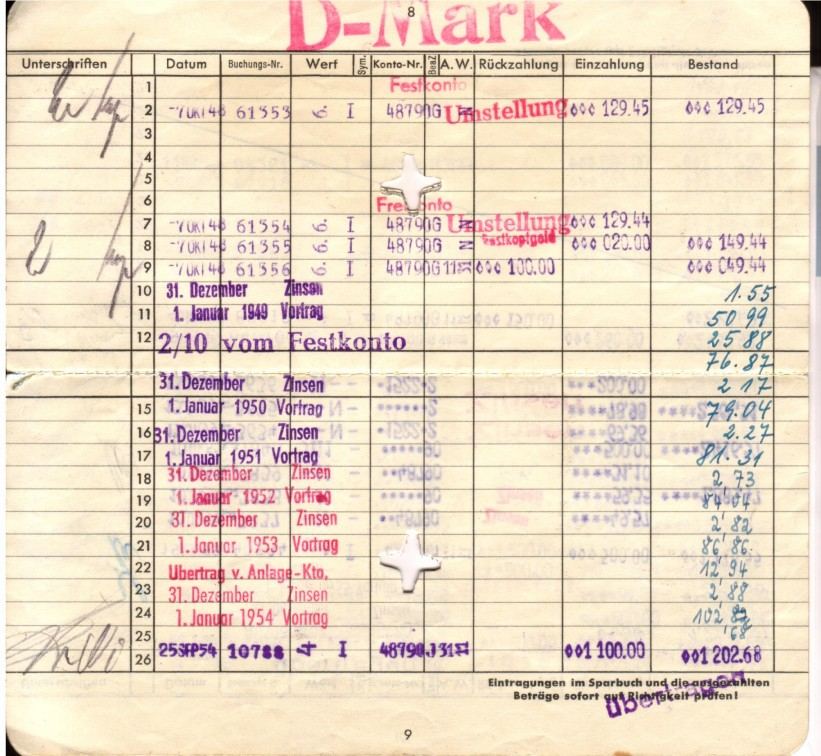 8
D-Mark
Unterschriften Datum Buchungs-Nr. Wert Sym. Konto-Nr. BeaZ A.W. Rückzahlung Einzahlung Bestand
1 Festkonto
2 -7OKT48 61353 6. I 48790G N Umstellung 129.45 129.45
3
4
5
6 Freikonto
7 -7OKT48 61354 6. I 48790G N Umstellung 129.44
8 -7OKT48 61355 6. I 48790G N 020.00 149.44
9 -7OKT48 61356 6. I 48790G 11 100.00 049.44
10 31. Dezember Zinsen 1.55
11 1. Januar 1949 Vortrag 50 99
12 2/10 vom Festkonto 25 88
76.87
31. Dezember Zinsen 2 17
15 1. Januar 1950 Vortrag 79.04
16 31. Dezember Zinsen 2.27
17 1. Januar 1951 Vortrag 81.31
18 31. Dezember Zinsen 2 73
19 1. Januar 1952 Vortrag 84 04
20 31. Dezember Zinsen 2 82
21 1. Januar 1953 Vortrag 86 86
22 Übertrag v. Anlage-Kto, 12 94
23 31. Dezember Zinsen 2 88
24 1. Januar 1954 Vortrag 102
25 68
26 25SEP54 10788 4 I 48790 31 001 100.00 001 202.68
Eintragungen im Sparbuch und die ausgezahlten
Beträge sofort auf Richtigkeit prüfen!
übertragen
9